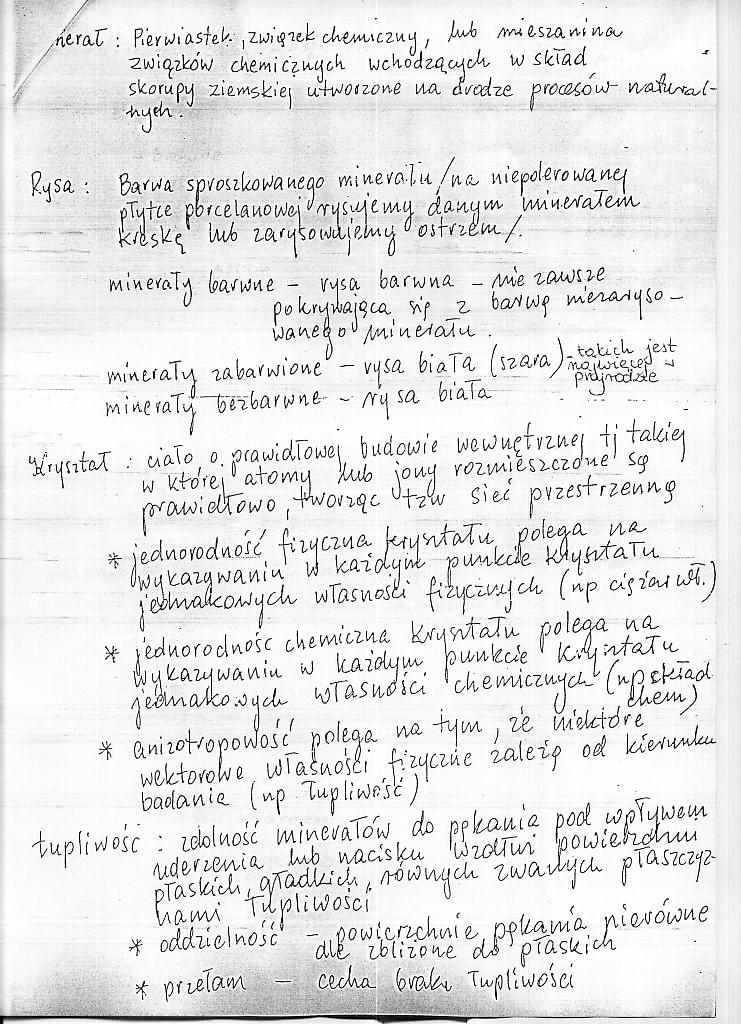 nerał : Pierwiastek, związek chemiczny, lub mieszanina
związków chemicznych wchodzących w skład
skorupy ziemskiej utworzone na drodze procesów natural-
nych.
Rysa : Barwa sproszkowanego minerału /na niepolerowanej
płytce porcelanowej rysujemy danym minerałem
kreskę lub zarysowujemy ostrzem/.
minerały barwne – rysa barwna – nie zawsze
pokrywająca się z barwą niezaryso-
wanego minerału.
minerały zabarwione – rysa biała (szara) - takich jest
najwięcej w
przyrodzie
minerały bezbarwne – rysa biała
Kryształ : ciało o prawidłowej budowie wewnętrznej tj takiej
w której atomy lub jony rozmieszczone są
prawidłowo, tworząc tzw sieć przestrzenną
* jednorodność fizyczna kryształu polega na
wykazywaniu w każdym punkcie kryształu
jednakowych własności fizycznych (np ciężar wł.)
* jednorodność chemiczna kryształu polega na
wykazywaniu w każdym punkcie kryształu
jednakowych własności chemicznych (np skład
chem)
* anizotropowość polega na tym, że niektóre
wektorowe własności fizyczne zależą od kierunku
badania (np łupliwość)
łupliwość : zdolność minerałów do pękania pod wpływem
uderzenia lub nacisku wzdłuż powierzchni
płaskich, gładkich, równych zwanych płaszczyz-
nami łupliwości
* oddzielność – powierzchnie pękania nierówne
ale zbliżone do płaskich
* przełam – cecha braku łupliwości